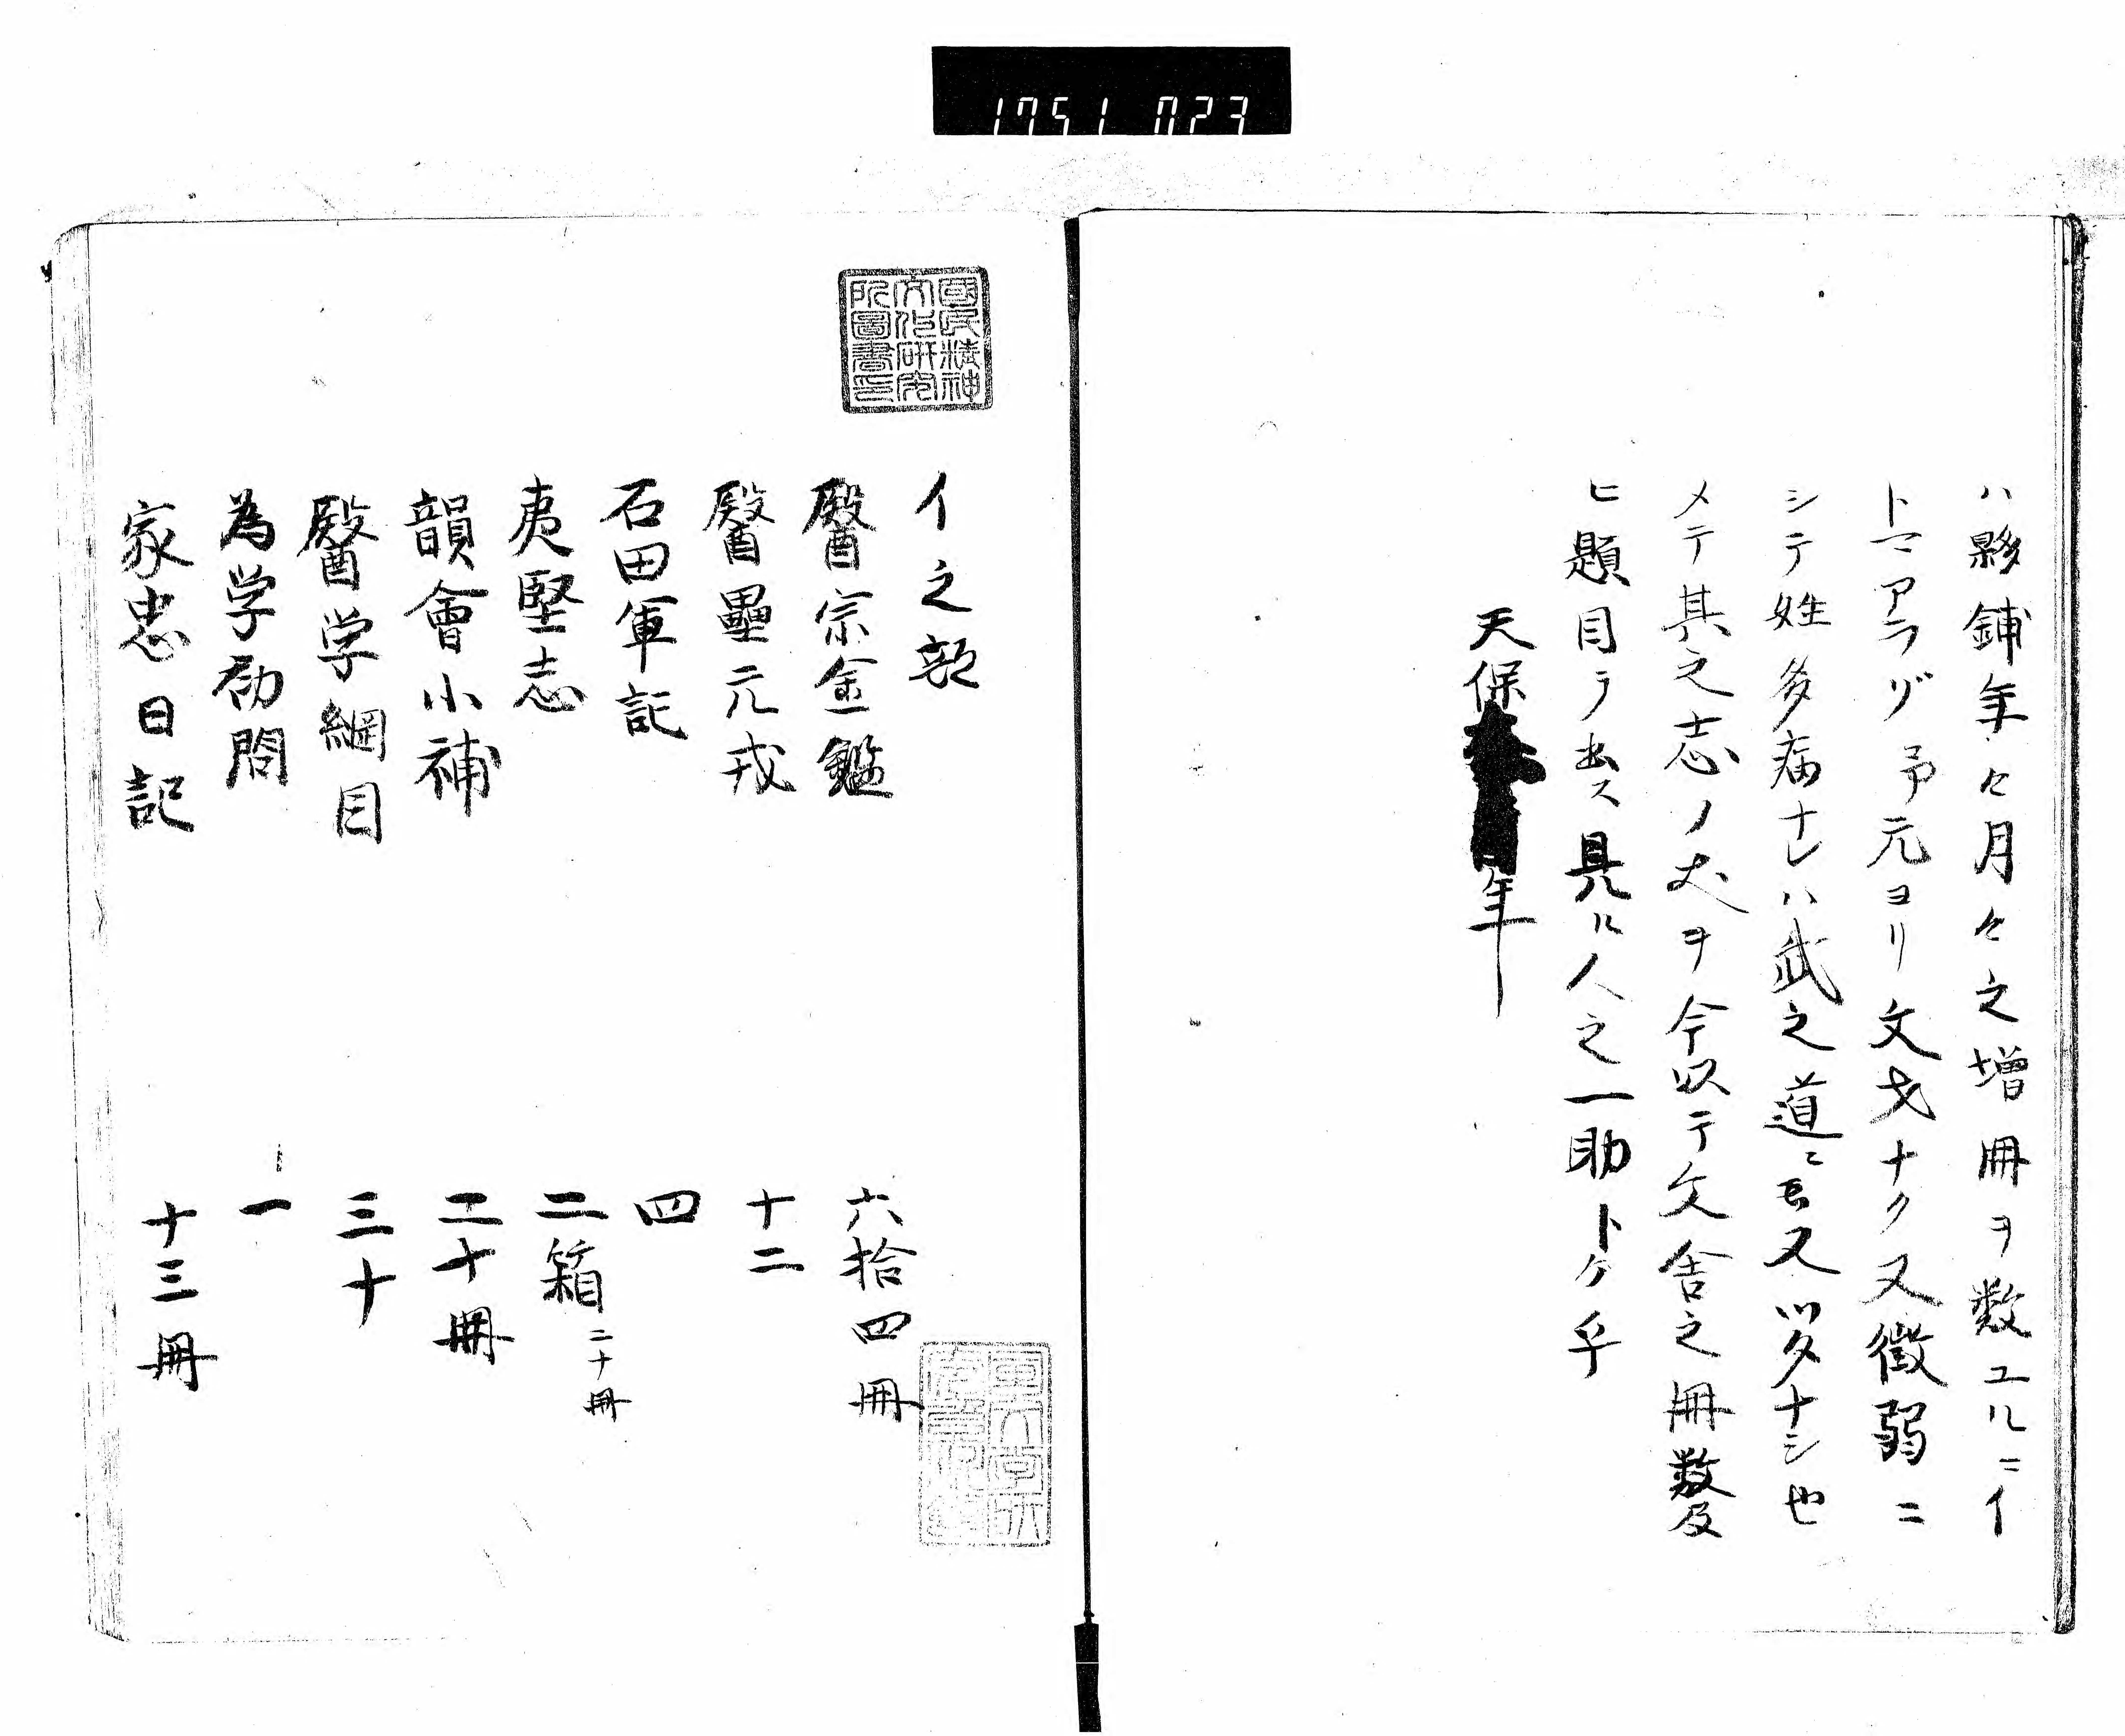 1751 023
ハ夥鋪年々月々之増冊ヲ数エルニイ
トマアラヅ予元ヨリ文才ナク又微弱ニ
シテ姓多病ナレハ武之道ニモ又以タナシ也
メテ其之志ノ丈ヲ今以テ文舎之冊数及
ヒ題目ヲ出ス具ル人之一助トケ乎
天保年
國民精神
文化研究
所圖書印
イ之部
醫宗金鑑 六拾四冊
醫壘元戎 十二
石田軍記 四
夷堅志 二箱二十冊
韻會小補 二十冊
醫学綱目 三十
為学初問 一
家忠日記 十三冊